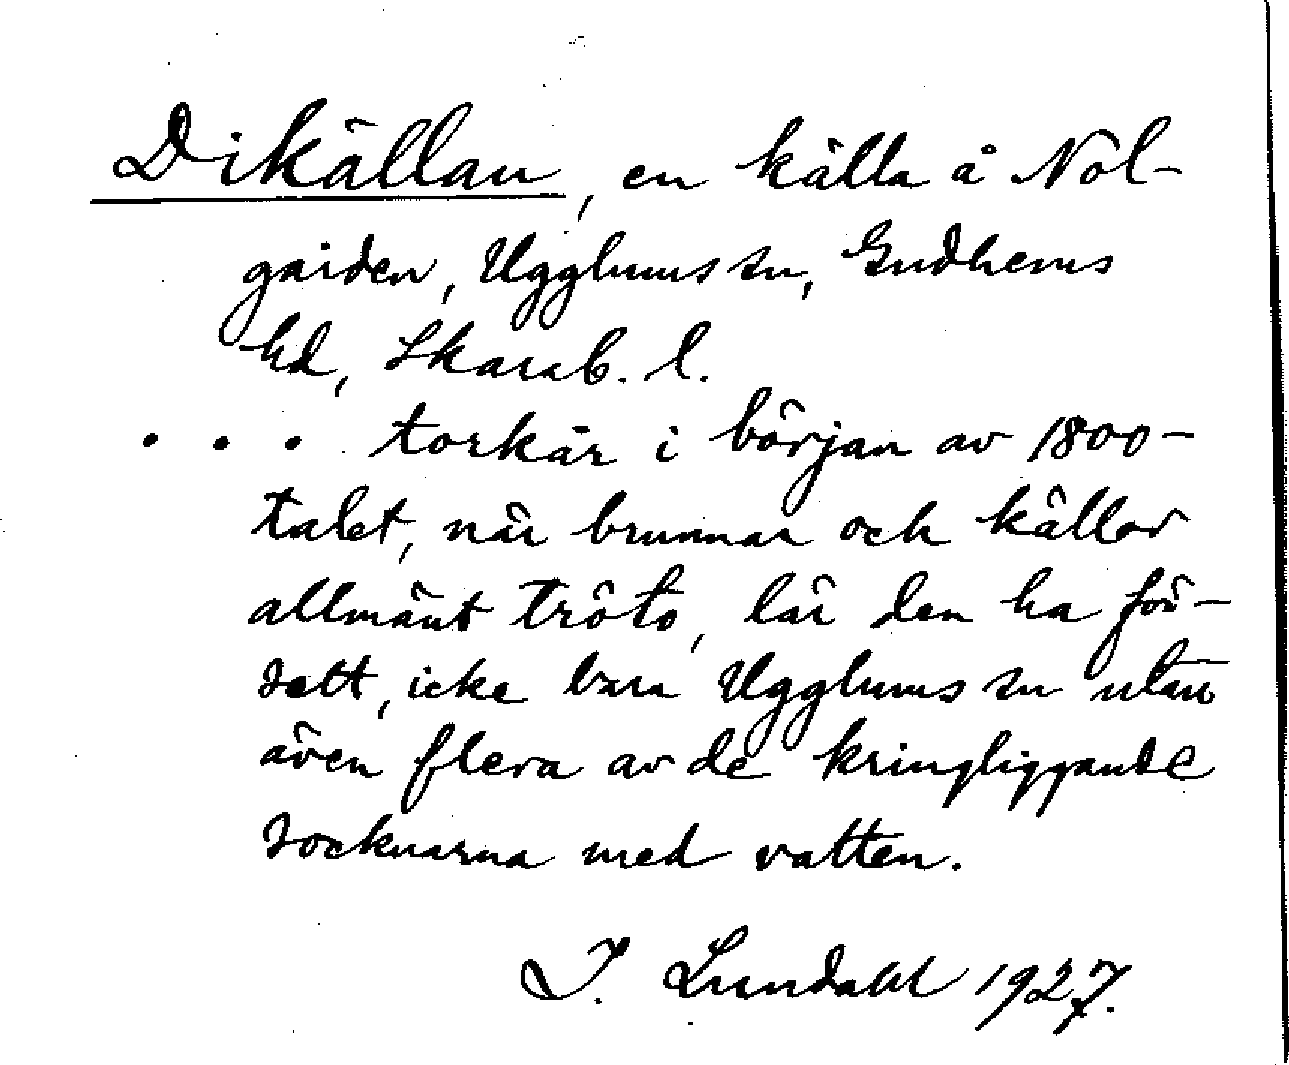 Dikällan, en källa å Nol-
gården, Ugglums sn, Gudhems
hd, Skarab. l.
. . . torkår i början av 1800-
talet, när brunnar och källor
allmänt tröto, lär den ha för-
sett, icke bara Ugglums sn utan
även flera av de kringliggande
socknarna med vatten.
I. Lundahl 1927.